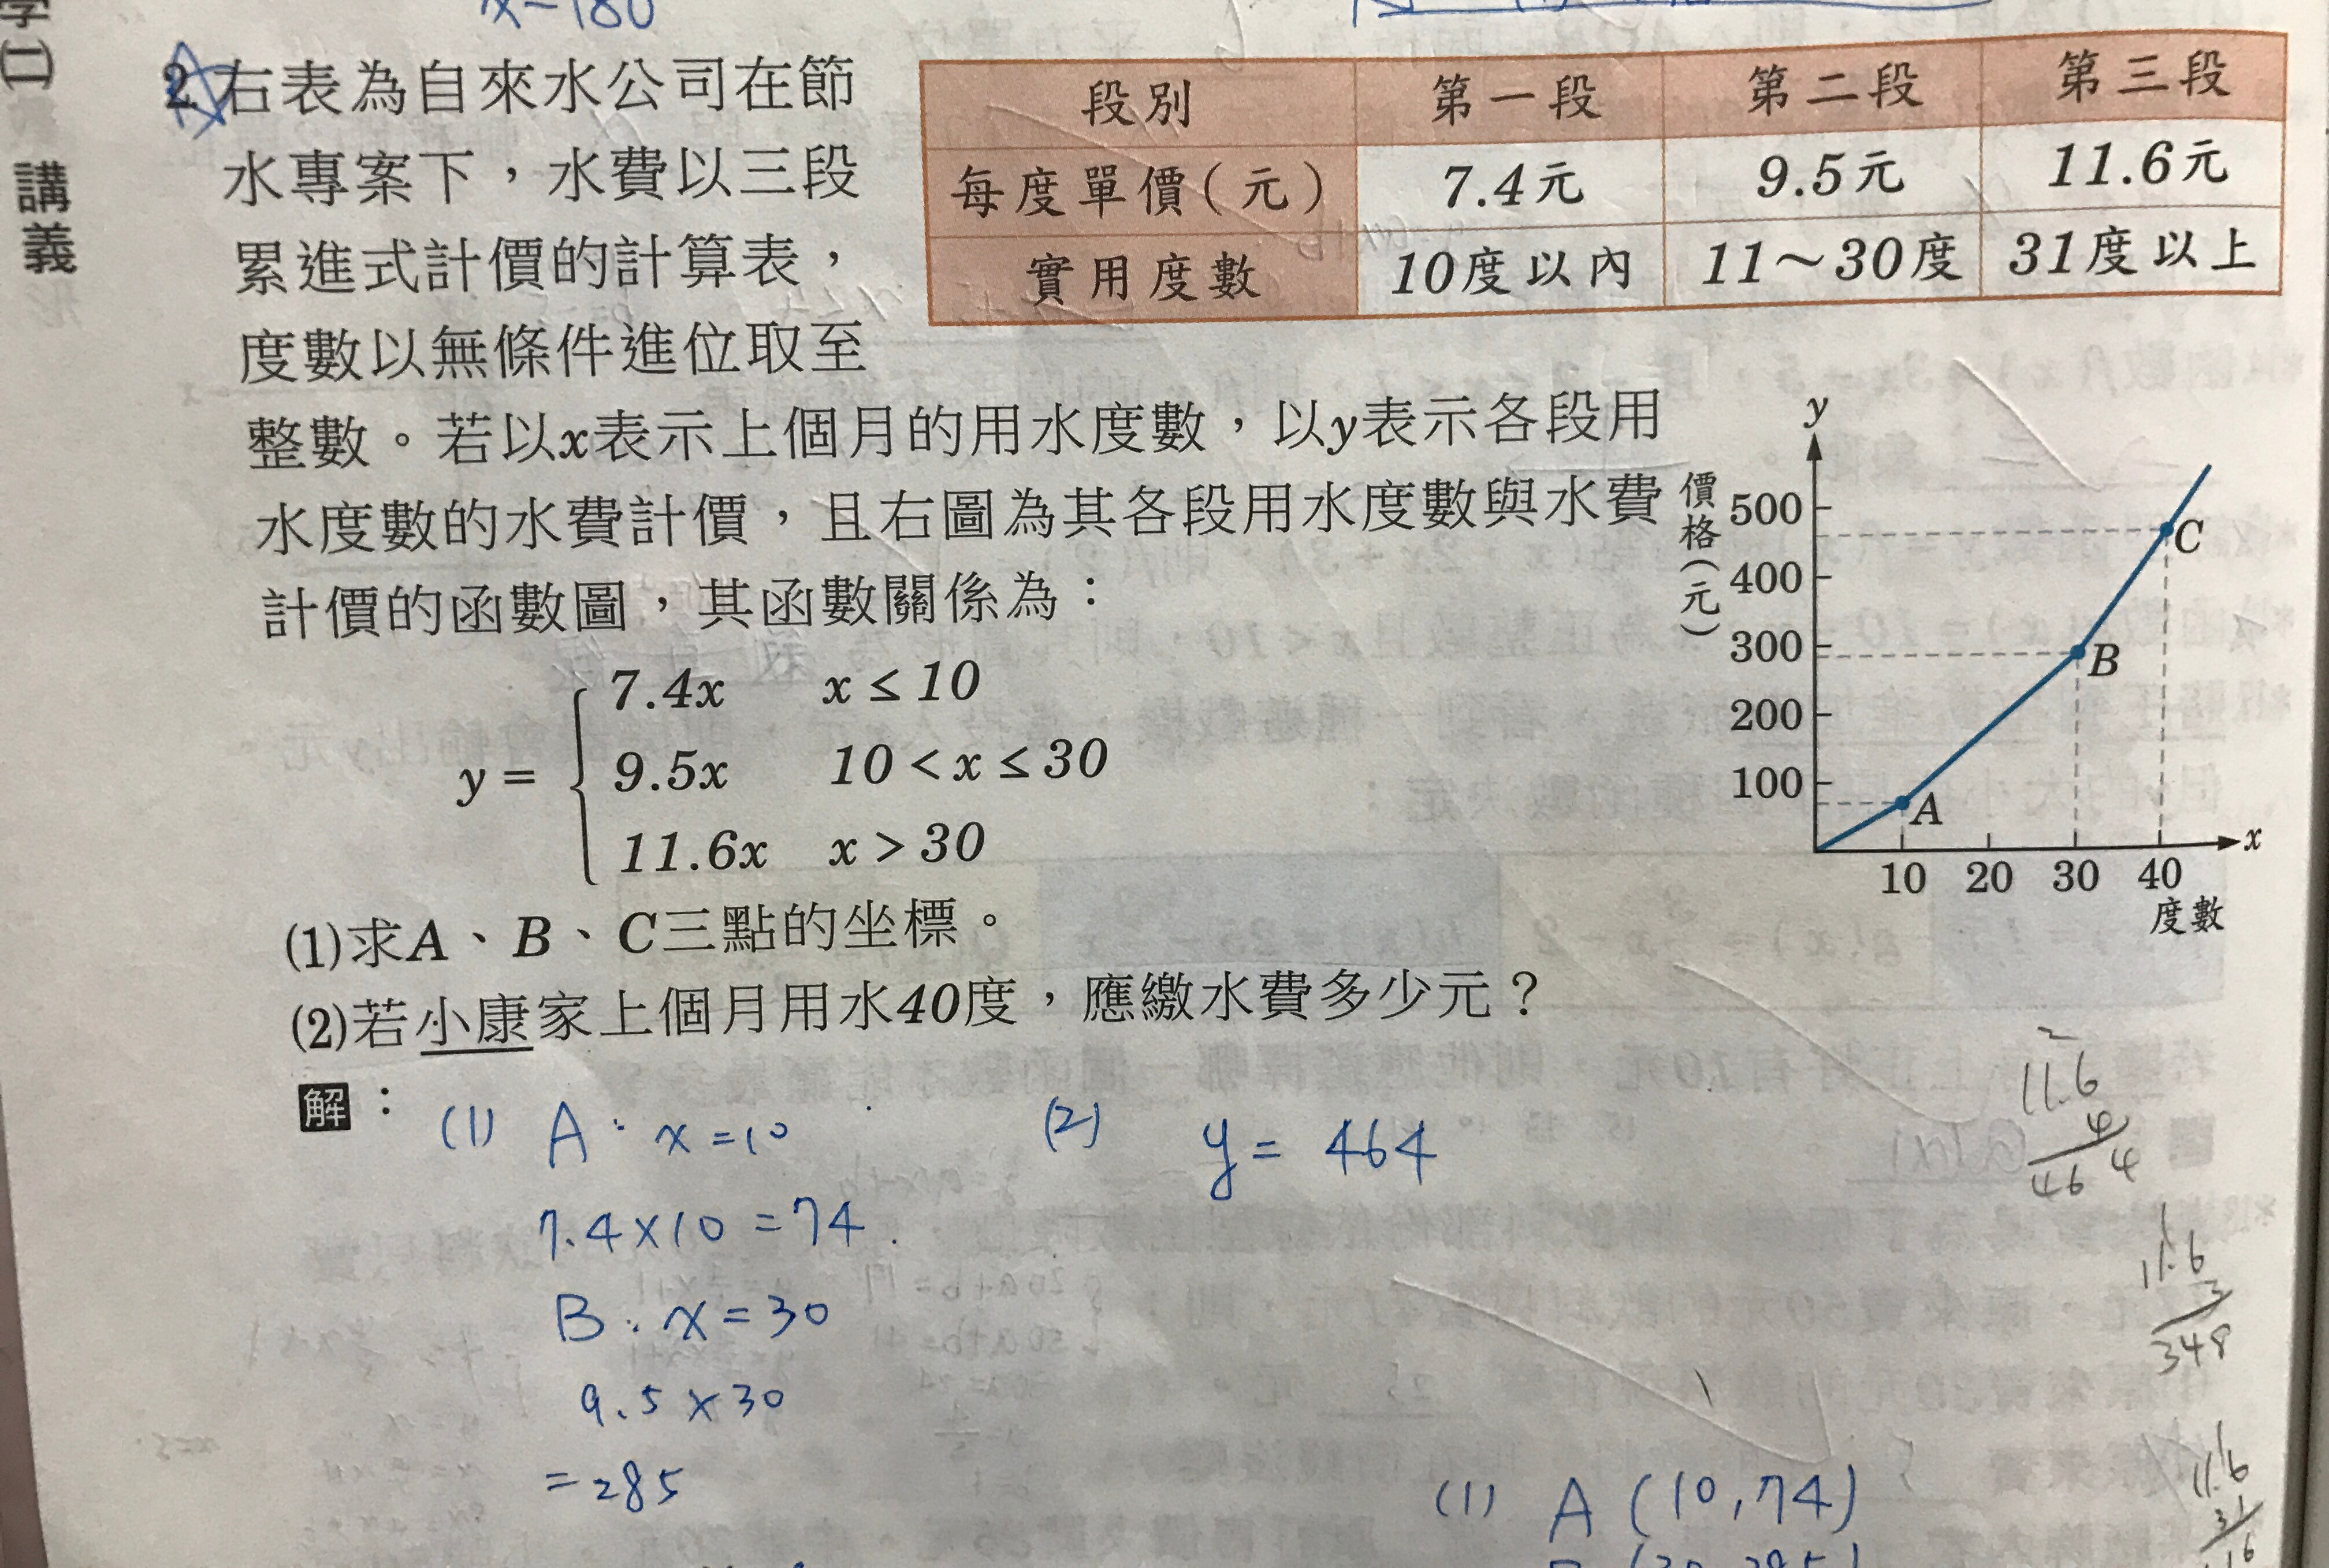 x=180
學(二)
講義
2.右表為自來水公司在節
水專案下，水費以三段
累進式計價的計算表，
度數以無條件進位取至
整數。若以x表示上個月的用水度數，以y表示各段用
水度數的水費計價，且右圖為其各段用水度數與水費
計價的函數圖，其函數關係為：
段別 第一段 第二段 第三段
每度單價(元) 7.4元 9.5元 11.6元
實用度數 10度以內 11～30度 31度以上
y = { 7.4x x ≤ 10
9.5x 10 < x ≤ 30
11.6x x > 30
y
價格(元)
500
400
300
200
100
C
B
A
x
10 20 30 40
度數
(1)求A、B、C三點的坐標。
(2)若小康家上個月用水40度，應繳水費多少元？
解：
(1) A：x=10
7.4×10 =74
B：x=30
9.5×30
=285
(2) y= 464
(1) A (10,74)
11.6
4
46 4
11.6
3
348
11.6